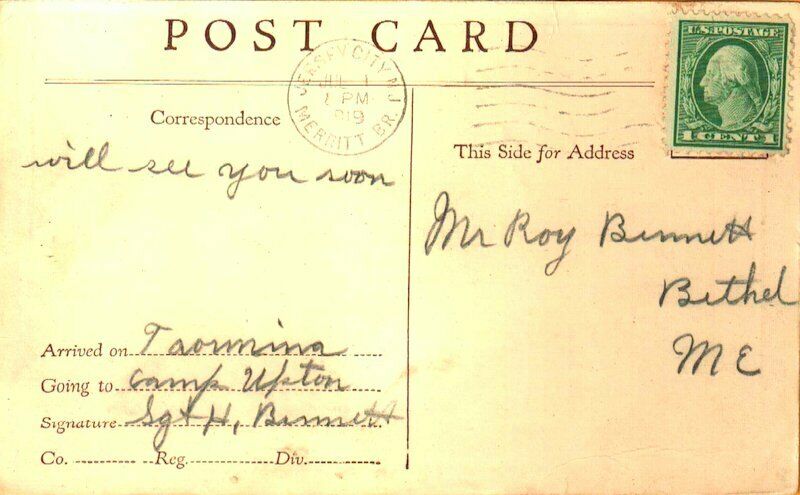 POST CARD
JERSEY CITY, N.J.
JUL 1
1 PM
1919
MERRITT BR.
U.S. POSTAGE
1 CENT 1
Correspondence
This Side for Address
will see you soon
Mr Roy Bennett
Bethel
ME
Arrived on Taormina
Going to Camp Upton
Signature Sgt H, Bennett
Co. Reg. Div.